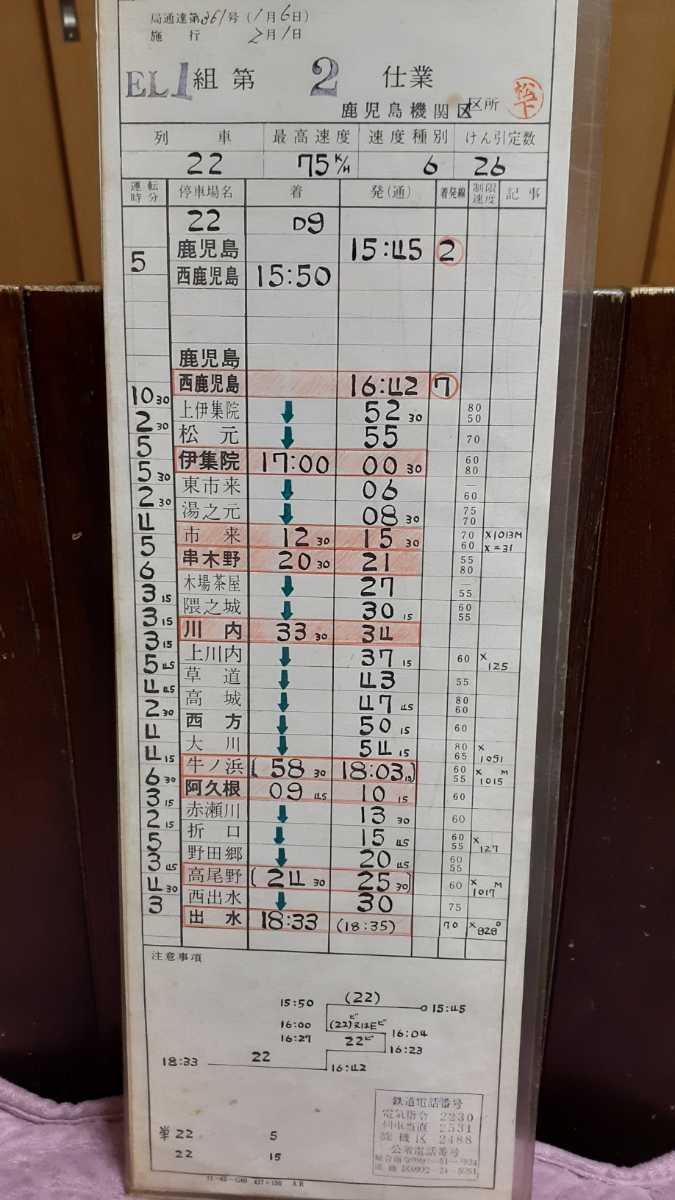 局通達第361号(1月6日)
施行 2月1日
EL1組第 2 仕業
鹿児島機関区 区所
松下
列車 最高速度 速度種別 けん引定数
22 75K/H 6 26
運転時分 停車場名 着 発(通) 着発線 制限速度 記事
22 D9
鹿児島 15:45 2
5
西鹿児島 15:50
鹿児島
西鹿児島 16:42 7
10 30
上伊集院 ↓ 52 30 80 50
2 30
松元 ↓ 55 70
5
伊集院 17:00 00 30 60 80
5 30
東市来 ↓ 06 — 60
2 30
湯之元 ↓ 08 30 75 70
4
市来 12 30 15 30 70 60 X1013M X=31
5
串木野 20 30 21 55 80
6
木場茶屋 ↓ 27 — 55
3 15
隈之城 ↓ 30 15 60 55
3 15
川内 33 30 34
3 15
上川内 ↓ 37 15 60 X125
5 45
草道 ↓ 43 55
4 45
高城 ↓ 47 45 80 60
2 30
西方 ↓ 50 15 60
4
大川 ↓ 54 15 80 65 X1051
4 15
牛ノ浜 (58 30 18:03 15) 60 55 X1015M
6 30
阿久根 09 45 10 15 60
3 15
赤瀬川 ↓ 13 30 60
2 15
折口 ↓ 15 45 60 55 X127
5
野田郷 ↓ 20 45 60 55
3 45
高尾野 (24 30 25 30) 60 X1017M
4 30
西出水 ↓ 30 75
3
出水 18:33 (18:35) 70 X828D
注意事項
15:50 (22) 15:45
16:00 (22)又はEビ 16:04
16:27 22ビ 16:23
18:33 22 16:42
単22 5
22 15
鉄道電話番号
電気指令 2230
列車当直 2531
鹿機区 2488
公衆電話番号